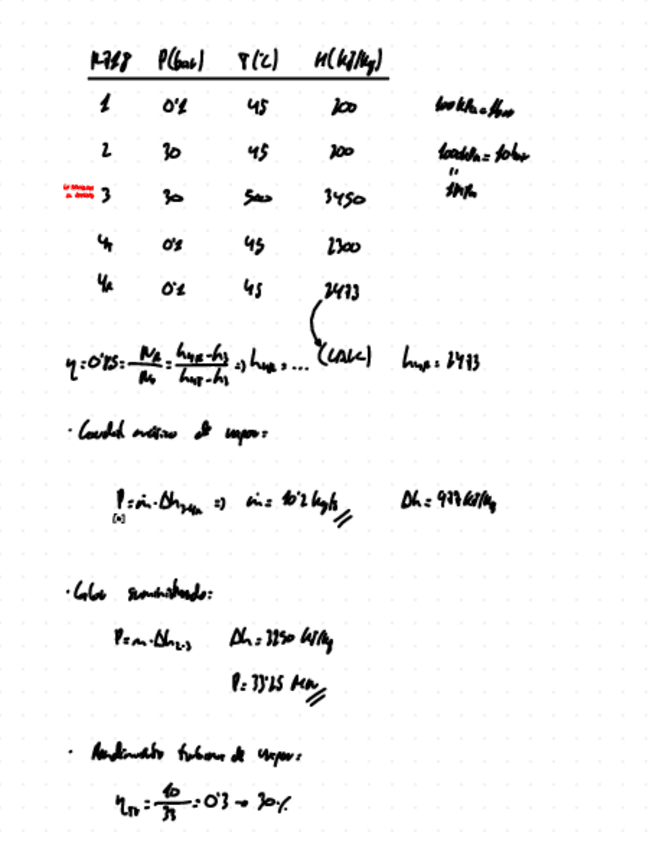 R718 P(bar) T(°C) H(kJ/kg)
1 0'1 45 200 100kPa=1bar
2 30 45 200 1000kPa = 10bar
"
3 30 500 3450 1MPa
4T 0'1 45 2300
4R 0'1 45 2473
η=0'85= = h4R-h3 / h4T-h3 => h4R = ... (CALC) h4R = 2473
· Caudal másico de vapor:
P=ṁ·Δh3-4R => ṁ= 10'2 kg/s Δh = 977 kJ/kg
· Calor suministrado:
P=m·Δh2-3 Δh = 3250 kJ/kg
P= 33'15 MW
· Rendimiento turbina de vapor:
ηTV = 10/33 = 0'3 → 30%